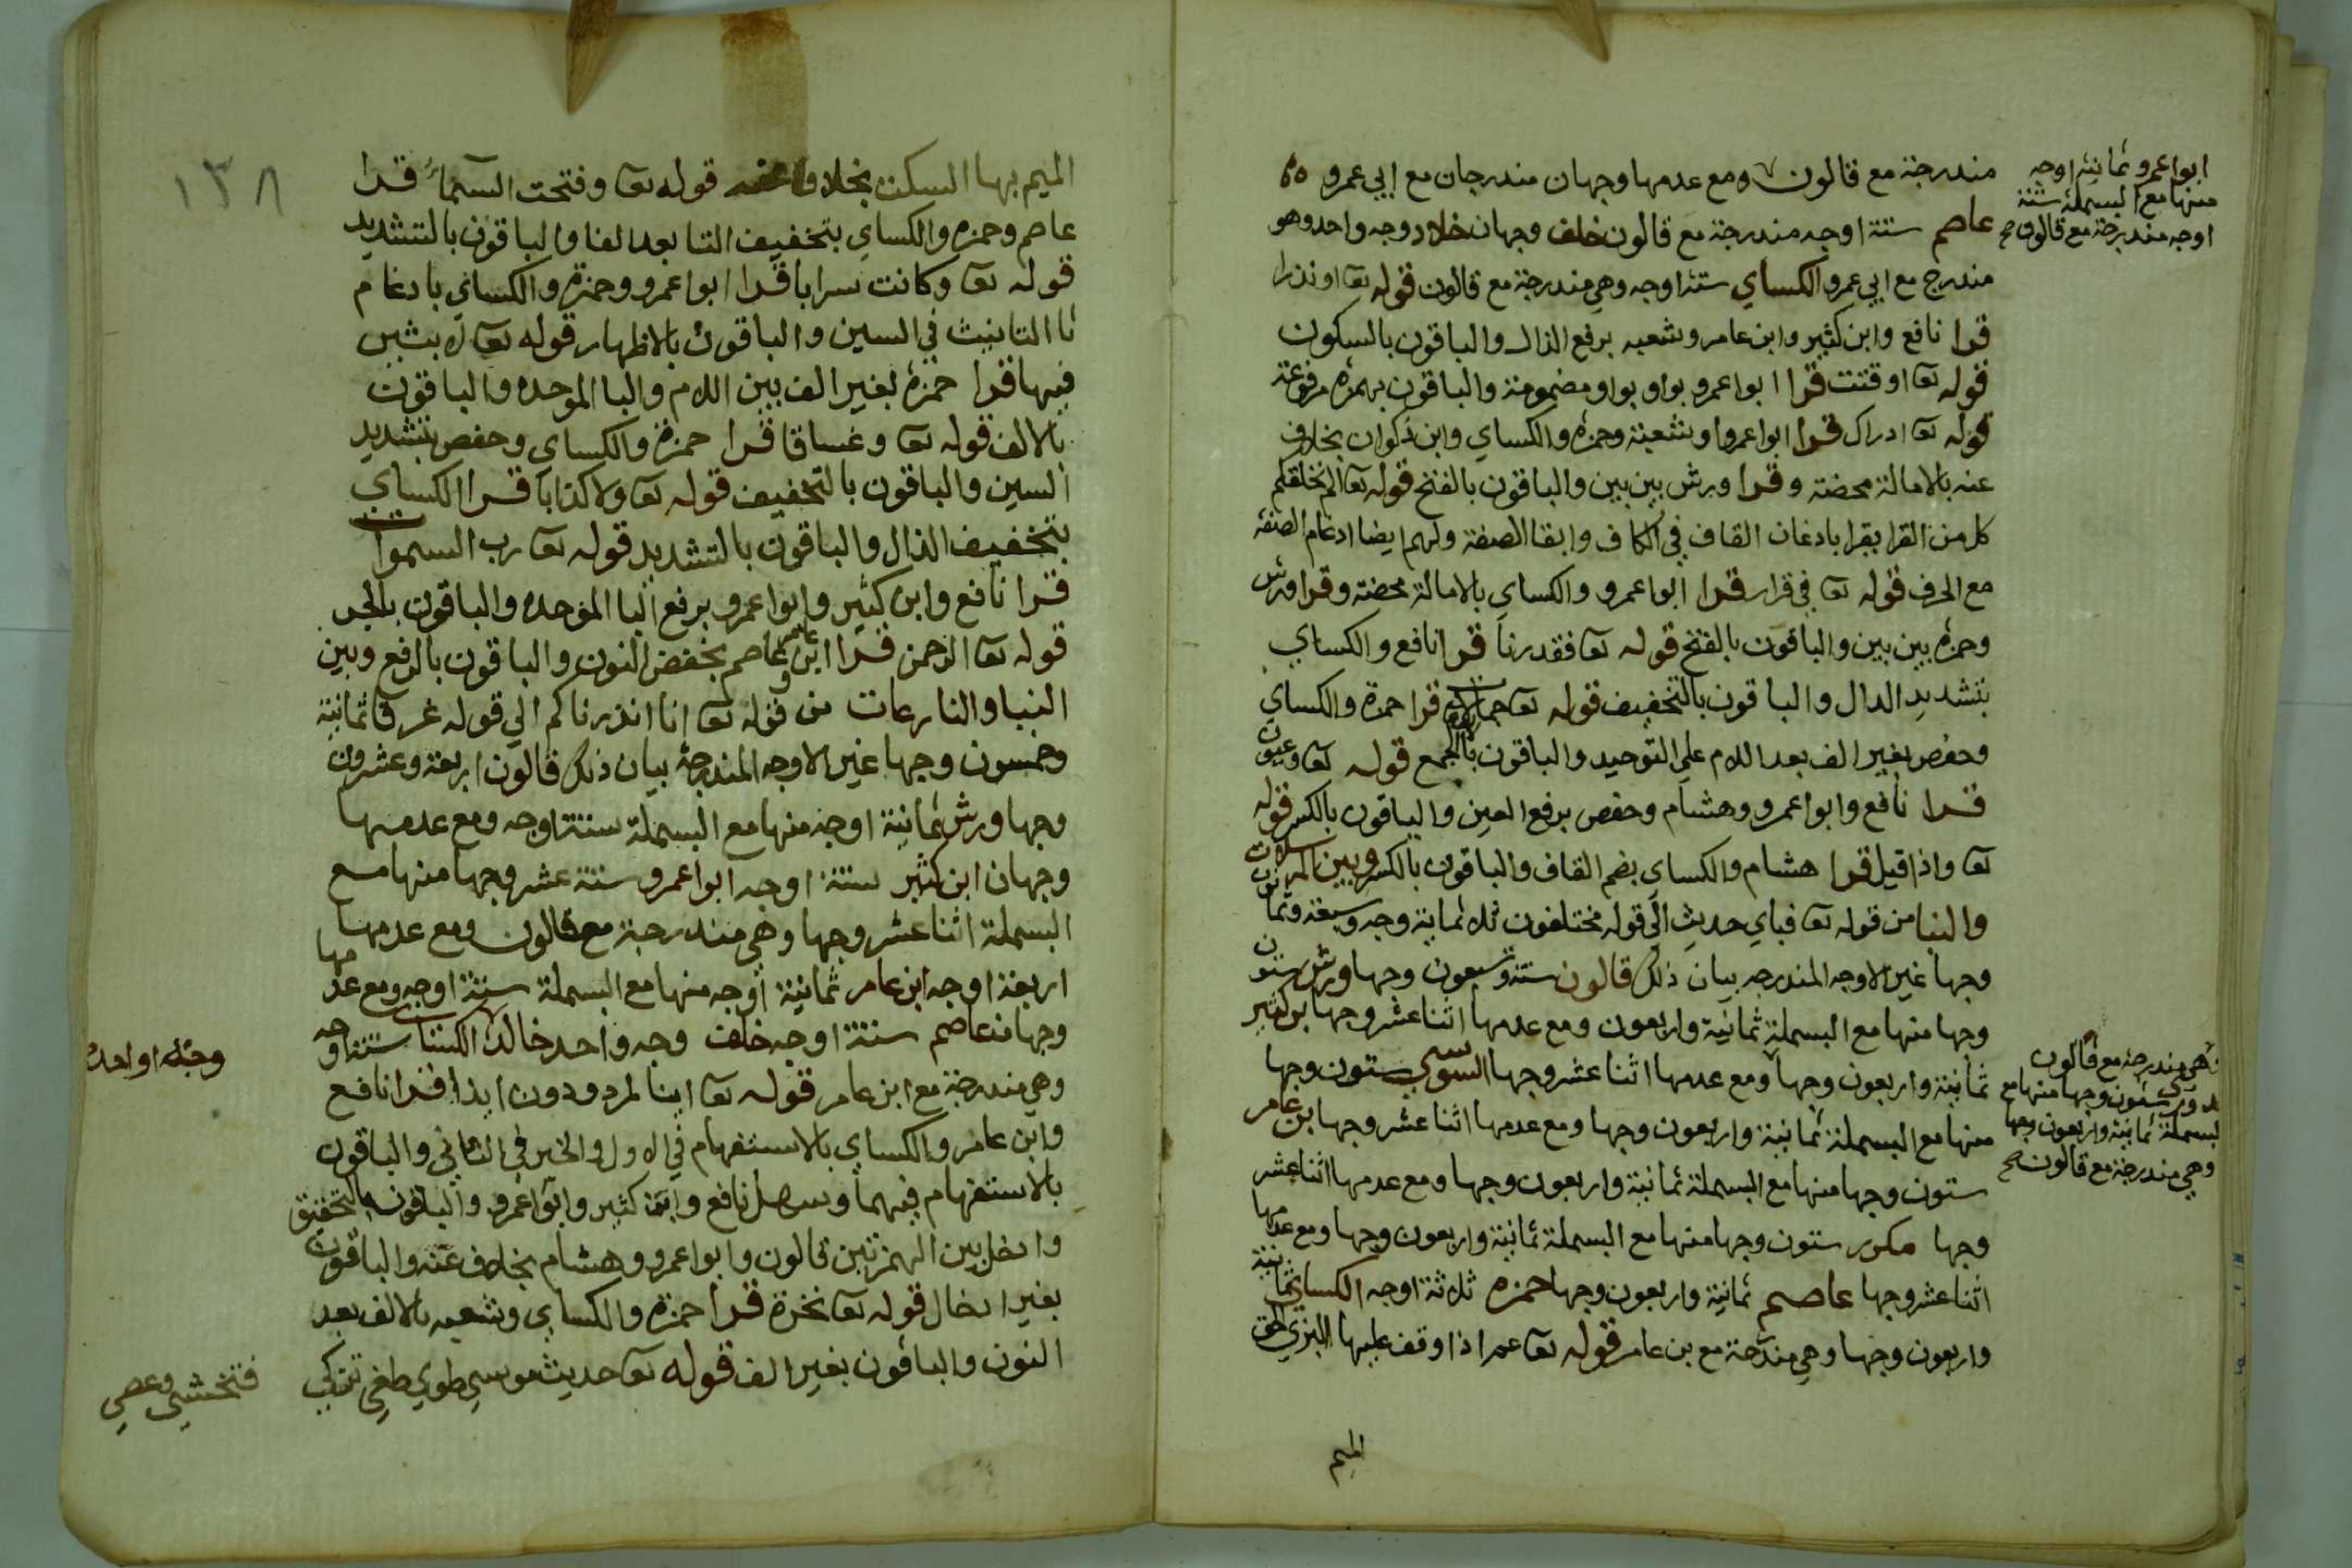 مندرجة مع قالون ومع عدمها وجهان مندرجان مع ابي عمرو
عاصم ستة اوجه مندرجة مع قالون خلف وجهان خلاد وجه واحد وهو
مندرج مع ابي عمرو الكساي ستة اوجه وهي مندرجة مع قالون قوله تعا او نذرا
قرا نافع وابن كثير وابن عامر وشعبه برفع الذال والباقون بالسكون
قوله تعا اوقتت قرا ابوا عمرو بواو بواو مضمومة والباقون بهمزه مرفوعة
قوله تعا ادراك قرا ابوا عمروا وشعبة وحمزه والكساي وابن ذكوان بخلاف
عنه بالامالة محضة وقرا ورش بين بين والباقون بالفتح قوله تعا الم نخلقكم
كل من القرا يقرا بادغان القاف في الكاف وابقا الصفة ولهم ايضا ادغام الصفة
مع الحرف قوله تعا في قرار قرا ابوا عمرو والكساي بالامالة محضة وقرا ورش
وحمزه بين بين والباقون بالفتح قوله تعا فقدرنا قرا نافع والكساي
بتشديد الدال والباقون بالتخفيف قوله تعا جمالات قرا حمزة والكساي
وحفص بغير الف بعد اللام علي التوحيد والباقون بالجمع قوله تعا وعيون
قرا نافع وابوا عمرو وهشام وحفص برفع العين والباقون بالكسر قوله
تعا واذا قيل قرا هشام والكساي بضم القاف والباقون بالكسر وبين المرسلات
والنبا من قوله تعا فباي حديث الي قوله مختلفون ثلاثماية وجه وسبعة وثمانون
وجها غير الاوجه المندرجه بيان ذلك قالون ستة وتسعون وجها ورش ستون
وجها منها مع البسملة ثمانية واربعون ومع عدمها اثنا عشر وجها بن كثير
ثمانية واربعون وجها ومع عدمها اثنا عشر وجها السوسي ستون وجها
منها مع البسملة ثمانية واربعون وجها ومع عدمها اثنا عشر وجها بن عامر
ستون وجها منها مع البسملة ثمانية واربعون وجها ومع عدمها اثنا عشر
وجها مكرر ستون وجها منها مع البسملة ثمانية واربعون وجها ومع عدمها
اثنا عشر وجها عاصم ثمانية واربعون وجها حمزه ثلاثة اوجه الكساي ثمانية
واربعون وجها وهي مندرجة مع بن عامر قوله تعا عم اذا وقف عليها البزي الحق
الميم
ابوا عمرو ثمانية اوجه
منها مع البسملة ستة
اوجه مندرجة مع قالون صح
وهي مندرجة مع قالون
ستون وجها منها مع
البسملة ثمانية واربعون وجها
وهي مندرجة مع قالون صح
١٣٨
الميم بها السكت بخلاف عنه قوله تعا وفتحت السماء قرا
عاصم وحمزه والكساي بتخفيف التا بعد الفا والباقون بالتشديد
قوله تعا وكانت سرابا قرا ابوا عمرو وحمزة والكساي بادغام
تا التانيث في السين والباقون بالاظهار قوله تعا لابثين
فيها قرا حمزة بغير الف بين اللام والبا الموحده والباقون
بالالف قوله تعا وغساقا قرا حمزة والكساي وحفص بتشديد
السين والباقون بالتخفيف قوله تعا ولا كذابا قرا الكساي
بتخفيف الذال والباقون بالتشديد قوله تعا رب السموات
قرا نافع وابن كثير وابوا عمرو برفع البا الموحده والباقون بالجر
قوله تعا الرحمن قرا ابن عامر وعاصم بخفض النون والباقون بالرفع وبين
النبا والنازعات من قوله تعا انا انذرناكم الي قوله غرقا ثمانية
وخمسون وجها غير الاوجه المندرجة بيان ذلك قالون اربعة وعشرون
وجها ورش ثمانية اوجه منها مع البسملة ستة اوجه ومع عدمها
وجهان ابن كثير ستة اوجه ابوا عمرو ستة عشر وجها منها مع
البسملة اثنا عشر وجها وهي مندرجة مع قالون ومع عدمها
اربعة اوجه ابن عامر ثمانية اوجه منها مع البسملة ستة اوجه ومع عدمها
وجهان عاصم ستة اوجه خلف وجه واحد خالد الكساي ستة اوجه
وهي مندرجة مع ابن عامر قوله تعا اينا لمردودون ايذا قرا نافع
وابن عامر والكساي بالاستفهام في الاول والخبر في الثاني والباقون
بالاستفهام فيهما وسهل نافع وابن كثير وابوا عمرو والباقون بالتحقيق
وادخل بين الهمزتين قالون وابوا عمرو وهشام بخلاف عنه والباقون
بغير ادخال قوله تعا نخرة قرا حمزه والكساي وشعبه بالالف بعد
النون والباقون بغير الف قوله تعا حديث موسي طوي طغي تزكي
وجها واحدا
فتخشي وعصي